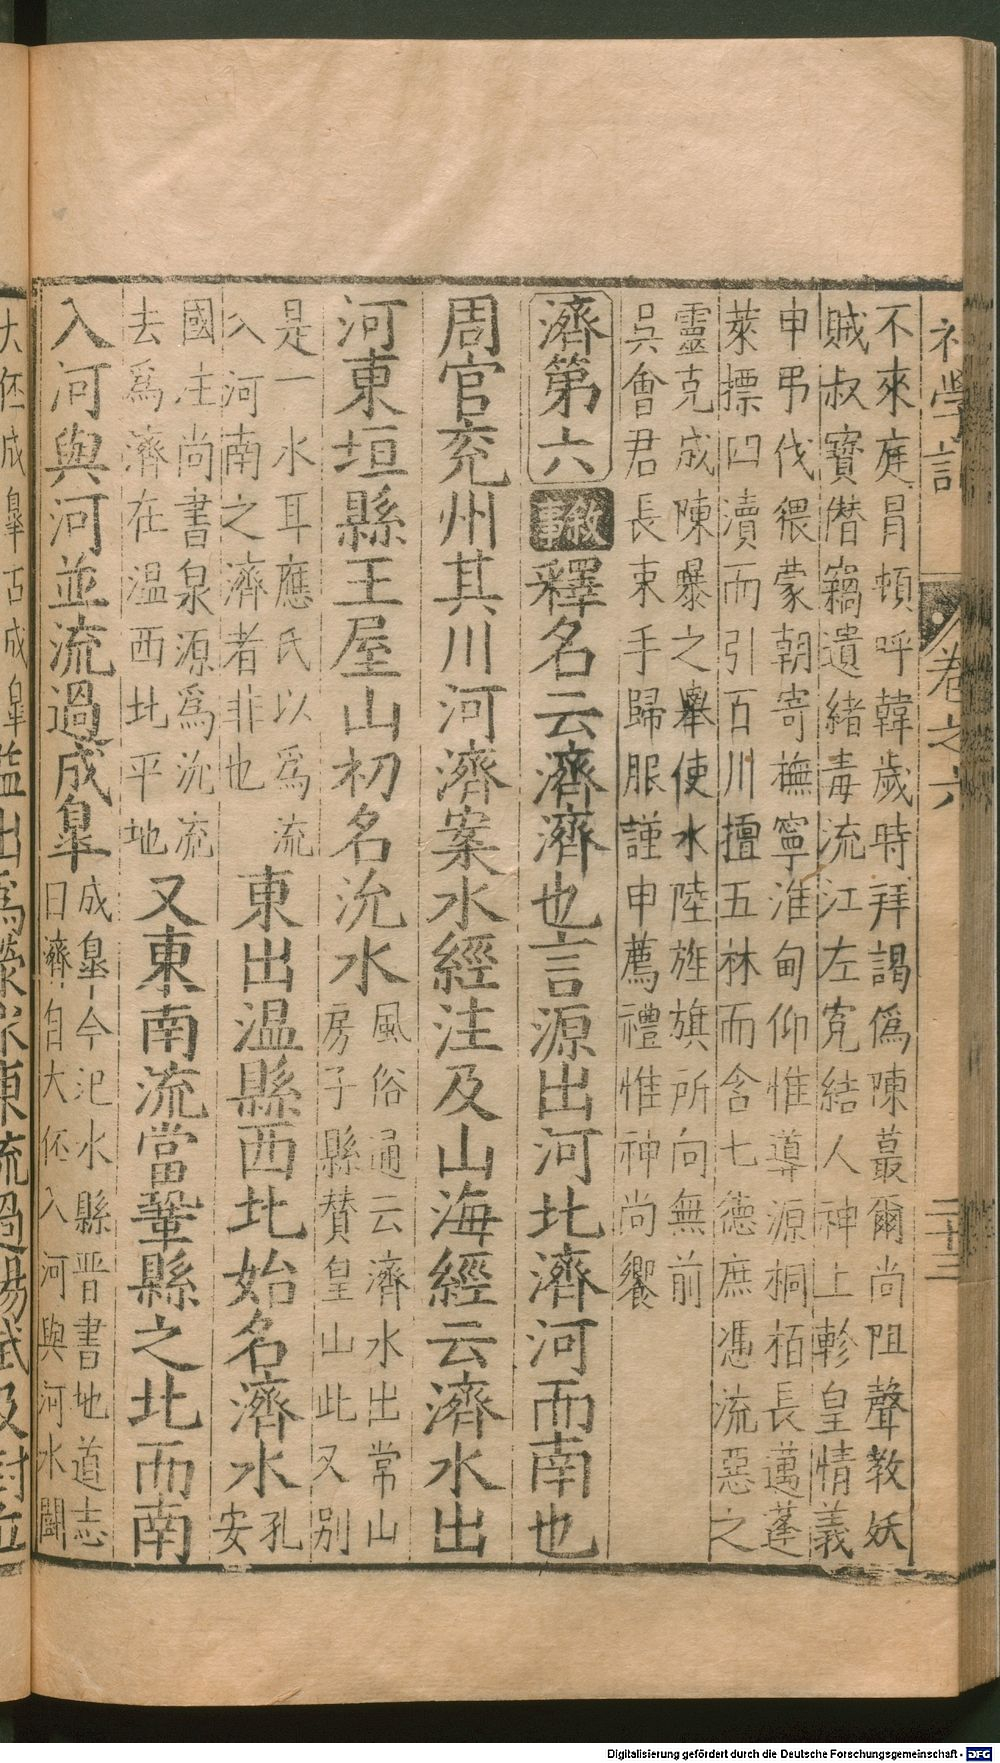 初學記 卷之六 二十三
不來庭冐頓呼韓歲時拜謁僞陳蕞爾尚阻聲教妖
賊叔寳潛竊遺緒毒流江左寃結人神上軫皇情義
申弔伐猥蒙朝寄撫寧淮甸仰惟導源桐栢長邁蓬
萊標四瀆而引百川擅五林而含七德庶憑流惡之
靈克成陳暴之舉使水陸旌旗所向無前
吳會君長束手歸服謹申薦禮惟神尚饗
濟第六 敘事 釋名云濟濟也言源出河北濟河而南也
周官兖州其川河濟案水經注及山海經云濟水出
河東垣縣王屋山初名沇水 風俗通云濟水出常山
房子縣賛皇山此又别
是一水耳應氏以爲流
入河南之濟者非也 東出温縣西北始名濟水 孔安
國注尚書泉源爲沇流
去爲濟在温西北平地 又東南流當鞏縣之北而南
入河與河並流過成臯 成臯今汜水縣晋書地道志
曰濟自大伾入河與河水鬭
大伾成臯古成臯 出爲 東流過陽武及封丘
Digitalisierung gefördert durch die Deutsche Forschungsgemeinschaft - DFG